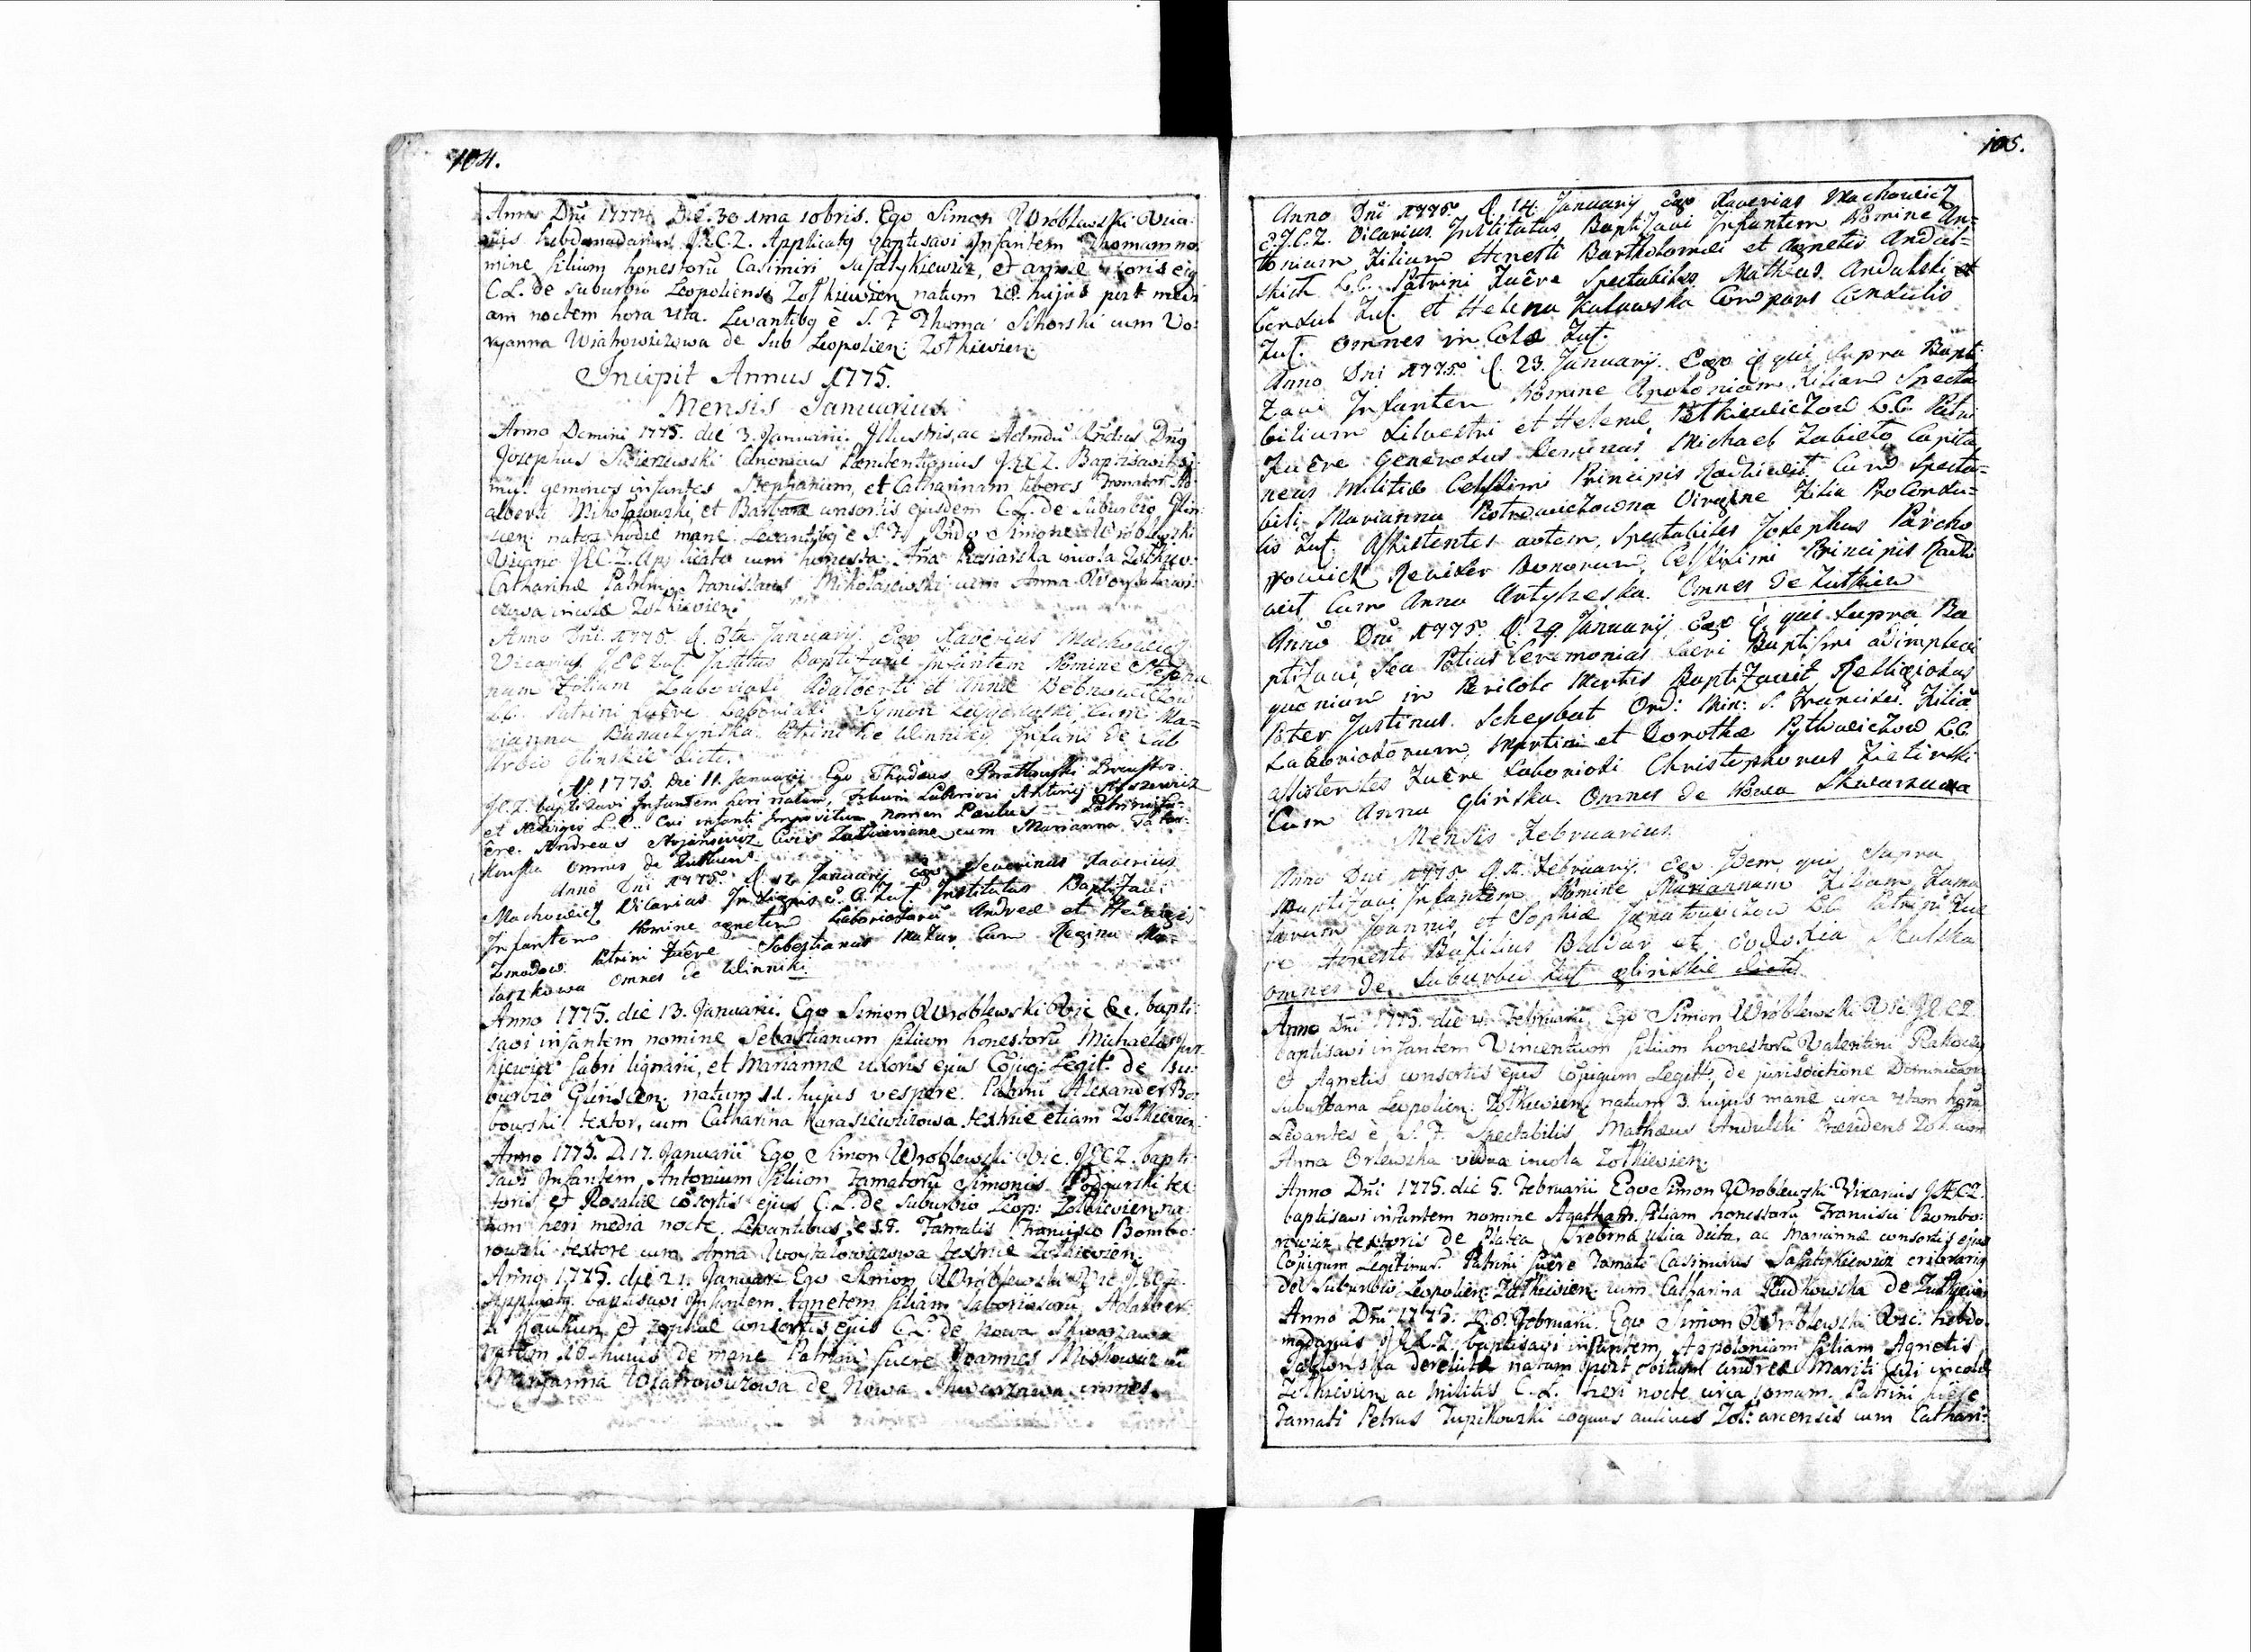 104.
Anno Dñi 1774. Die. 30 Xbris. Ego Simon Wróblewski Vica:
rius hebdomadarius I.E.C.Z. Applicatq baptisavi Infantem Thomam no:
mine filium honestorũ Casimiri Safatykiewicz, et Annæ uxoris ejq
C.L. de suburbio Leopoliensi Zołkiewien natum 28. hujus post medi
am noctem hora 4ta. Levantibq è S. F. Thoma Sikorski cum Vo:
ryanna Wiatrowiczowa de Sub Leopolien: Zołkievien:
Incipit Annus 1775.
Mensis Januarius.
Anno Domini 1775. die 3. Januarii. Illustris, ac Admdũ Rñdus Dnq
Josephus Canonicus Pænitentiarius I.E.C.Z. Baptisavit si:
mul geminos infantes Stephanum, et Catharinam liberos Ad:
alberti Mikołajewski, et Barbaræ consortis ejusdem C.L. de Suburbio Glin:
scien: natos hodie mane. Levantibq è S. F. Rñdo Simone Wróblewski
Vicario I.E.C.Z. Applicato cum honesta Aña incola Zołkiev:
Catharinæ Patrini Stanislaus Mikołajewski cum Anna Woytałowi:
czowa incolæ Zołkievien:
Anno Dñi 1775. d. 6ta January. Ego Xaverius Machowicz
Vicarius Baptizavi Infantem Nomine Stepha
num Filium Laboriosi Adalberti et Annæ
LC. Patrini fuêre Laboriosi Symon cum Ma=
rianna Patrini de Winniky Infans de Sub
urbio Glinskie dicto.
A 1775. Die 11. Januarij Ego Thadæus
I.C.Z. baptizavi Infantem heri natum, Filium Laboriosi Antonij
et Hedvigis L.C. Cui infanti Impositum nomen Paulus Patrini fu=
êre. Andreas Civis Zołkieviens cum Marianna
omnes de
Anno Dni 1775. d. 12 January ego Severinus Xaverius
Machowicz Vicarius Insignis Institutus Baptizavi
Infantem Nomine Agnetem Laboriosorũ Andreæ et Hedvigis
Zmodow. Patrini Fuêre Sebestianus Mazur, Cum Regina Ma=
larzkowa omnes de Winniki
Anno 1775. die 13. Januarii. Ego Simon Wróblewski Vic &c. bapti:
savi infantem nomine Sebastianum filium honestorũ Michaelis
kiewicz fabri lignarii, et Mariannæ uxoris ejus Cõjug: Legit: de Su:
burbio Glinscien: natum 11. hujus vespere. Patrini Alexander Bo:
bowski textor, cum Catharina Karasiewiczowa textrice etiam Zołkievien:
Anno 1775. D. 17. Januarii Ego Simon Wróblewski Vic. I.E.C.Z. bapti:
savi Infantem Antonium filium Famatorũ Simonis Podgurski tex
toris et Rosaliæ cõsortis ejus C.L. de Suburbio Leop: Zołkievien na:
tum heri media nocte. Levantibus è S.F. Famatis Francisco Bombo:
rowski textore cum Anna Woytałowiczowa textrice Zołkievien:
Anno 1775. die 21. Januarii Ego Simon Wróblewski Vic I.E.C.Z.
Applicatq baptisavi Infantem Agnetem filiam laboriosorũ Adalber:
ti et Zophiæ consortis ejus C.L. de Nowa Skwarzawa
natam 20 hujus de mane Patrini fuere Joannes Miskowicz cũ
Maryanna Wiatrowiczowa de Nowa Skwarzawa omnes.
105.
Anno Dñi 1775. d. 14. January Ego Xaverius Machowicz
E.I.C.Z. Vicarius Institutus Baptizavi Infantem Nomine An=
tonium Filium Honesti Bartholomæi et Agnetis Andul=
skich L.C. Patrini Fuêre Spectabiles Matheus Andulski et
Consul Zuł. et Helena Zuławska Compars Consulis
Zuł. Omnes in Colæ Zuł.
Anno Dni 1775. d. 23. January. Ego is qui Supra Bapti
Zavi Infantem Nomine Apoloniam Filiam Specta
bilium Silvestri et Helenæ Petkiewiczow L.C. Patri
Fuêre Generosus Dominus Michael Zabieło Capita
neus Militiæ Celssimi Principis Radziwił Cum Specta=
bili Marianna Piotrowiczowna Virgine Filia ProConsu=
lis Zuł. Assistentes autem, Spectabiles Josephus Parcho
mowicz Revisor Bonorum, Celssimi Principis Radzi
wił, Cum Anna Omnes de Zułkiew
Anno Dñi 1775. d. 29. January. Ego is qui Supra Ba
ptizavi, Seu Potius Ceremonias Sacri Baptismi adimplevi
quoniam in Periculo Mortis Baptizavit Relligiosus
Pater Justinus Scheybut Ord: Min: S. Francisci. Filiã
Laboriosorum, Martini et Dorothæ Pytlowiczow L.C.
Assistentes Fuêre Laboriosi Christophorus Zieliński
Cum Anna Glińska. Omnes de Nowa Skwarzawa
Mensis Februarius
Anno Dni 1775. d. 2. February. Ego Idem qui Supra
Baptizavi Infantem Nomine Mariannam Filiam Fama
torum Joannis, et Sophiæ Ignatowiczow L.C. Patrini Fue
re Honesti Basilius Bladar et Eudoxia Skulska
omnes de Suburbio Zuł Glinskie dicto
Anno Dñi 1775. die 4. Februarii, Ego Simon Wróblewski Vic. I.E.C.Z.
baptisavi infantem Vincentium filium honestorũ Valentini
et Agnetis consortis ejus Cõjugum Legitt:, de jurisdictione Dominicana
suburbana Leopolien: Zołkiewien natum 3. hujus mane circa 4tam horã
Levantes è S. F. Spectabilis Mathæus Andulski Præsidens Zoł. cum
Anna Orlewska vidua incola Zołkievien:
Anno Dñi 1775. die 5. Februarii Ego Simon Wróblewski Vicarius I.E.C.Z.
baptisavi infantem nomine Agatham filiam honestorũ Francisci Bombo:
rowicz textoris de Platea Srebrna ulica dicta, ac Mariannæ consortis ejus
Cõjugum Legitimor: Patrini fuêre Famati Casimirus Safatykiewicz cribrariq
de Suburbio Leopolien: Zołkiewien cum Catharina Rudkowska de Zułkiew
Anno Dñi 1775. D. 6. Februarii. Ego Simon Wróblewski Vic: hebdo:
madarius I.E.C.Z. baptisavi infantem Appoloniam filiam Agnetis
derelictæ natam post obitum Andreæ Mariti sui incolæ
Zołkievien: ac Militis C.L. heri nocte circa 10mam. Patrini fuêre
Famati Petrus Tupikowski coquus aulicus Zoł: arcensis cum Cathari: